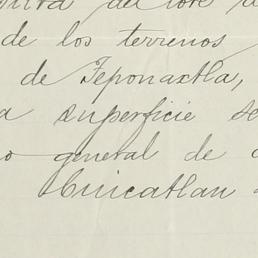 del lote
de los terrenos
de Teponaxtla,
a superficie se
o general de
Cuicatlan